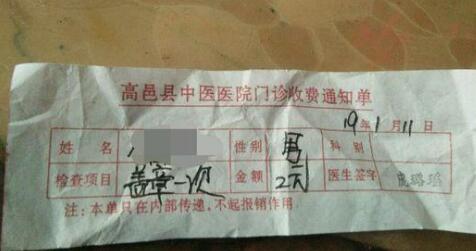 高邑县中医医院门诊收费通知单
19年1月11日
姓名 性别 男 科别
检查项目 盖章一次 金额 2元 医生签字
注:本单只在内部传递,不起报销作用